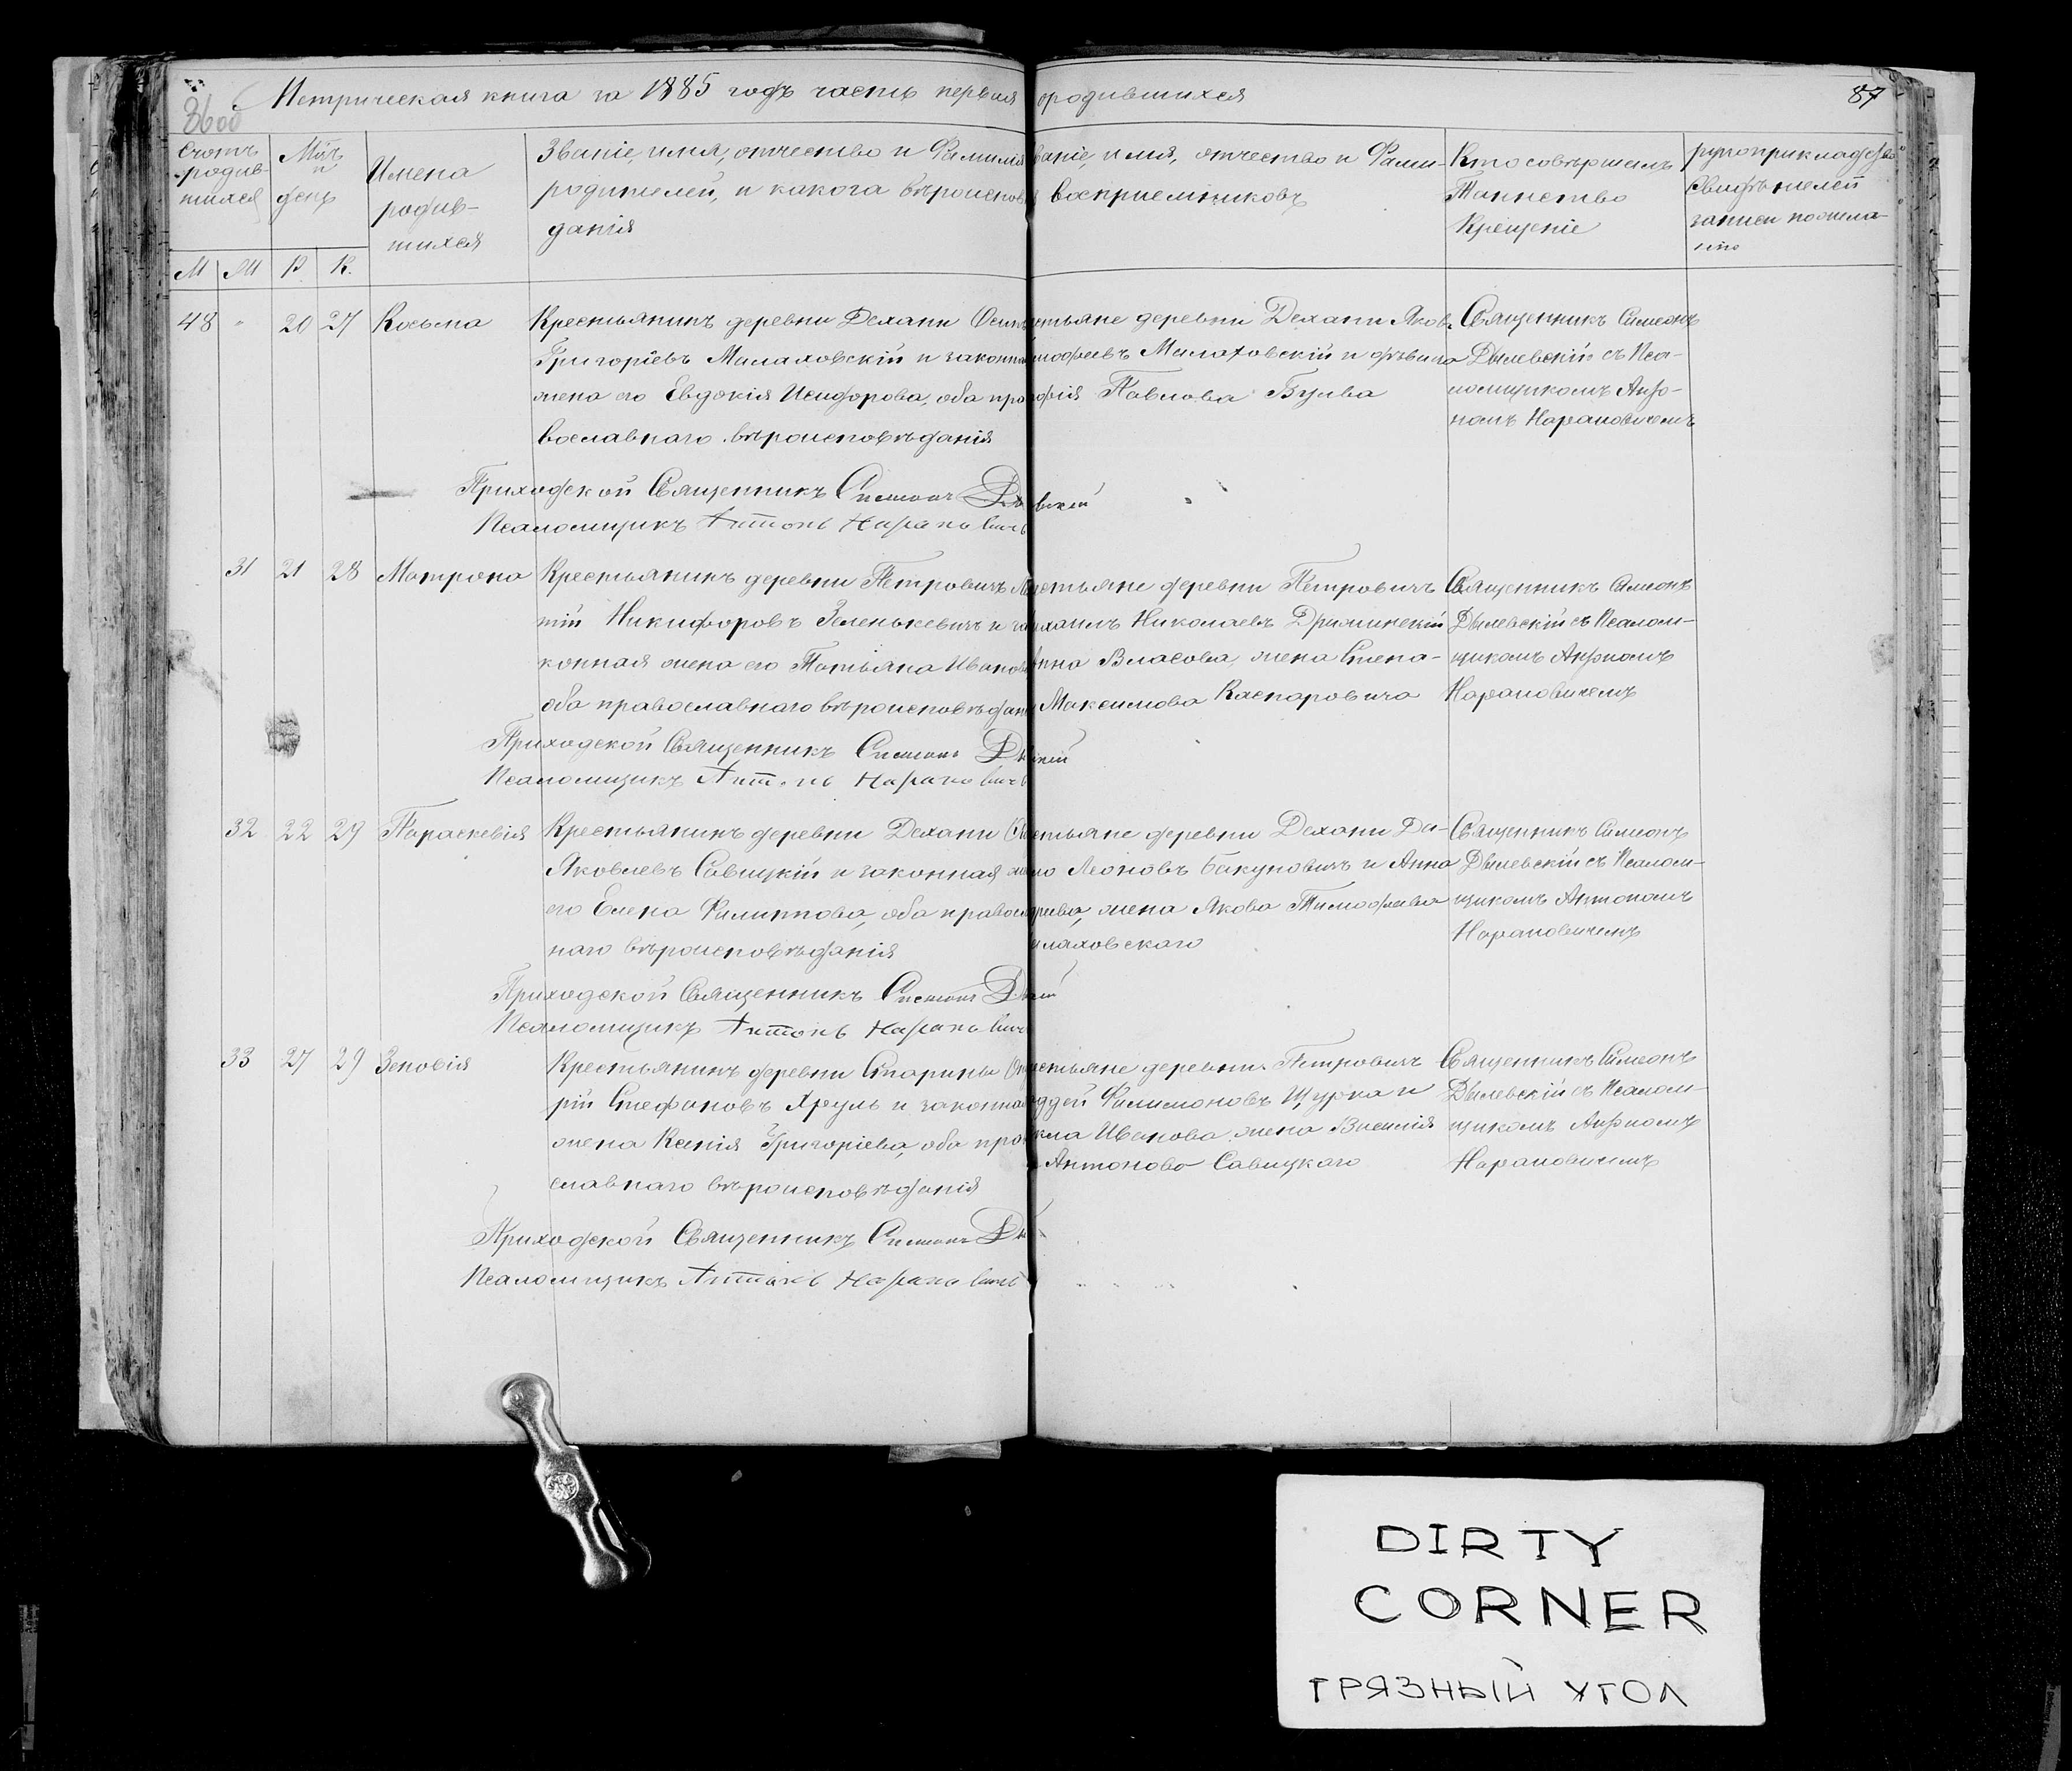 Метрическая книга за 1885 годъ часть первая ородившихся 87
Счотъ родив-шихся
Мцъ и день
Имена родив-шихся
Званіе, имя, отчество и Фамилія
родителей, и какога вѣроиспов
данія
званіе, имя, отчество и Фами-
воспріемниковъ
Кто совершалъ
Таинство
Крещеніе
рукоприкладство
Свидѣтелей
записи по жела-
нію
М М Р. К.
48 " 20 27 Косьма
Крестьянинъ деревни Дехани Осипъ
Григоріевъ Малаховскій и законная
жена его Евдокія Исидорова, оба про
вославнаго вѣроисповѣданія
стьяне деревни Дехани Яков
имофеевъ Малаховскій и дѣвица
офія Павлова Булва
Священникъ Симеонъ
Дылевскій съ Пса-
ломщикомъ Анто-
номъ Нарановичемъ
Приходской Священникъ Симеонъ Ды вскій
Псаломщикъ Антонъ Нарановичъ
31 21 28 Матрона
Крестьянинъ деревни Петровичъ
тій Никифоровъ Зеленькевичъ и за
конная жена его Татьяна Иванова
оба православнаго вѣроисповѣдан
стьяне деревни Петровичъ
ихаилъ Николаевъ Дриминскій
нна Власова, жена Степа-
Максимова Каспаровича
Священникъ Симеонъ
Дылевскій съ Псалом-
щикомъ Антономъ
Нарановичемъ
Приходской Священникъ Симеонъ Ды скій
Псаломщикъ Антонъ Нарановичъ
32 22 29 Параскевія
Крестьянинъ деревни Дехани
Яковлевъ Савицкій и законная же
его Елена Филиппова, оба правосл
наго вѣроисповѣданія
стьяне деревни Дехани Да-
ло Леоновъ Бакуновичъ и Анна
дреева, жена Якова Тимофеева
алаховскаго
Священникъ Симеонъ
Дылевскій съ Псалом-
щикомъ Антономъ
Нарановичемъ
Приходской Священникъ Симеонъ Ды кій
Псаломщикъ Антонъ Нарановичъ
33 27 29 Зеновія
Крестьянинъ деревни Старины
рій Стефановъ Хруль и законная
жена Ксенія Григоріева, оба про
славнаго вѣроисповѣданія
стьяне деревни Петровичъ
ддей Филимоновъ Щурка и
кла Иванова жена Василія
Антонова Савицкаго
Священникъ Симеонъ
Дылевскій съ Псалом-
щикомъ Антономъ
Нарановичемъ
Приходской Священникъ Симеонъ Ды
Псаломщикъ Антонъ Нарановичъ
DIRTY
CORNER
ГРЯЗНЫЙ УГОЛ